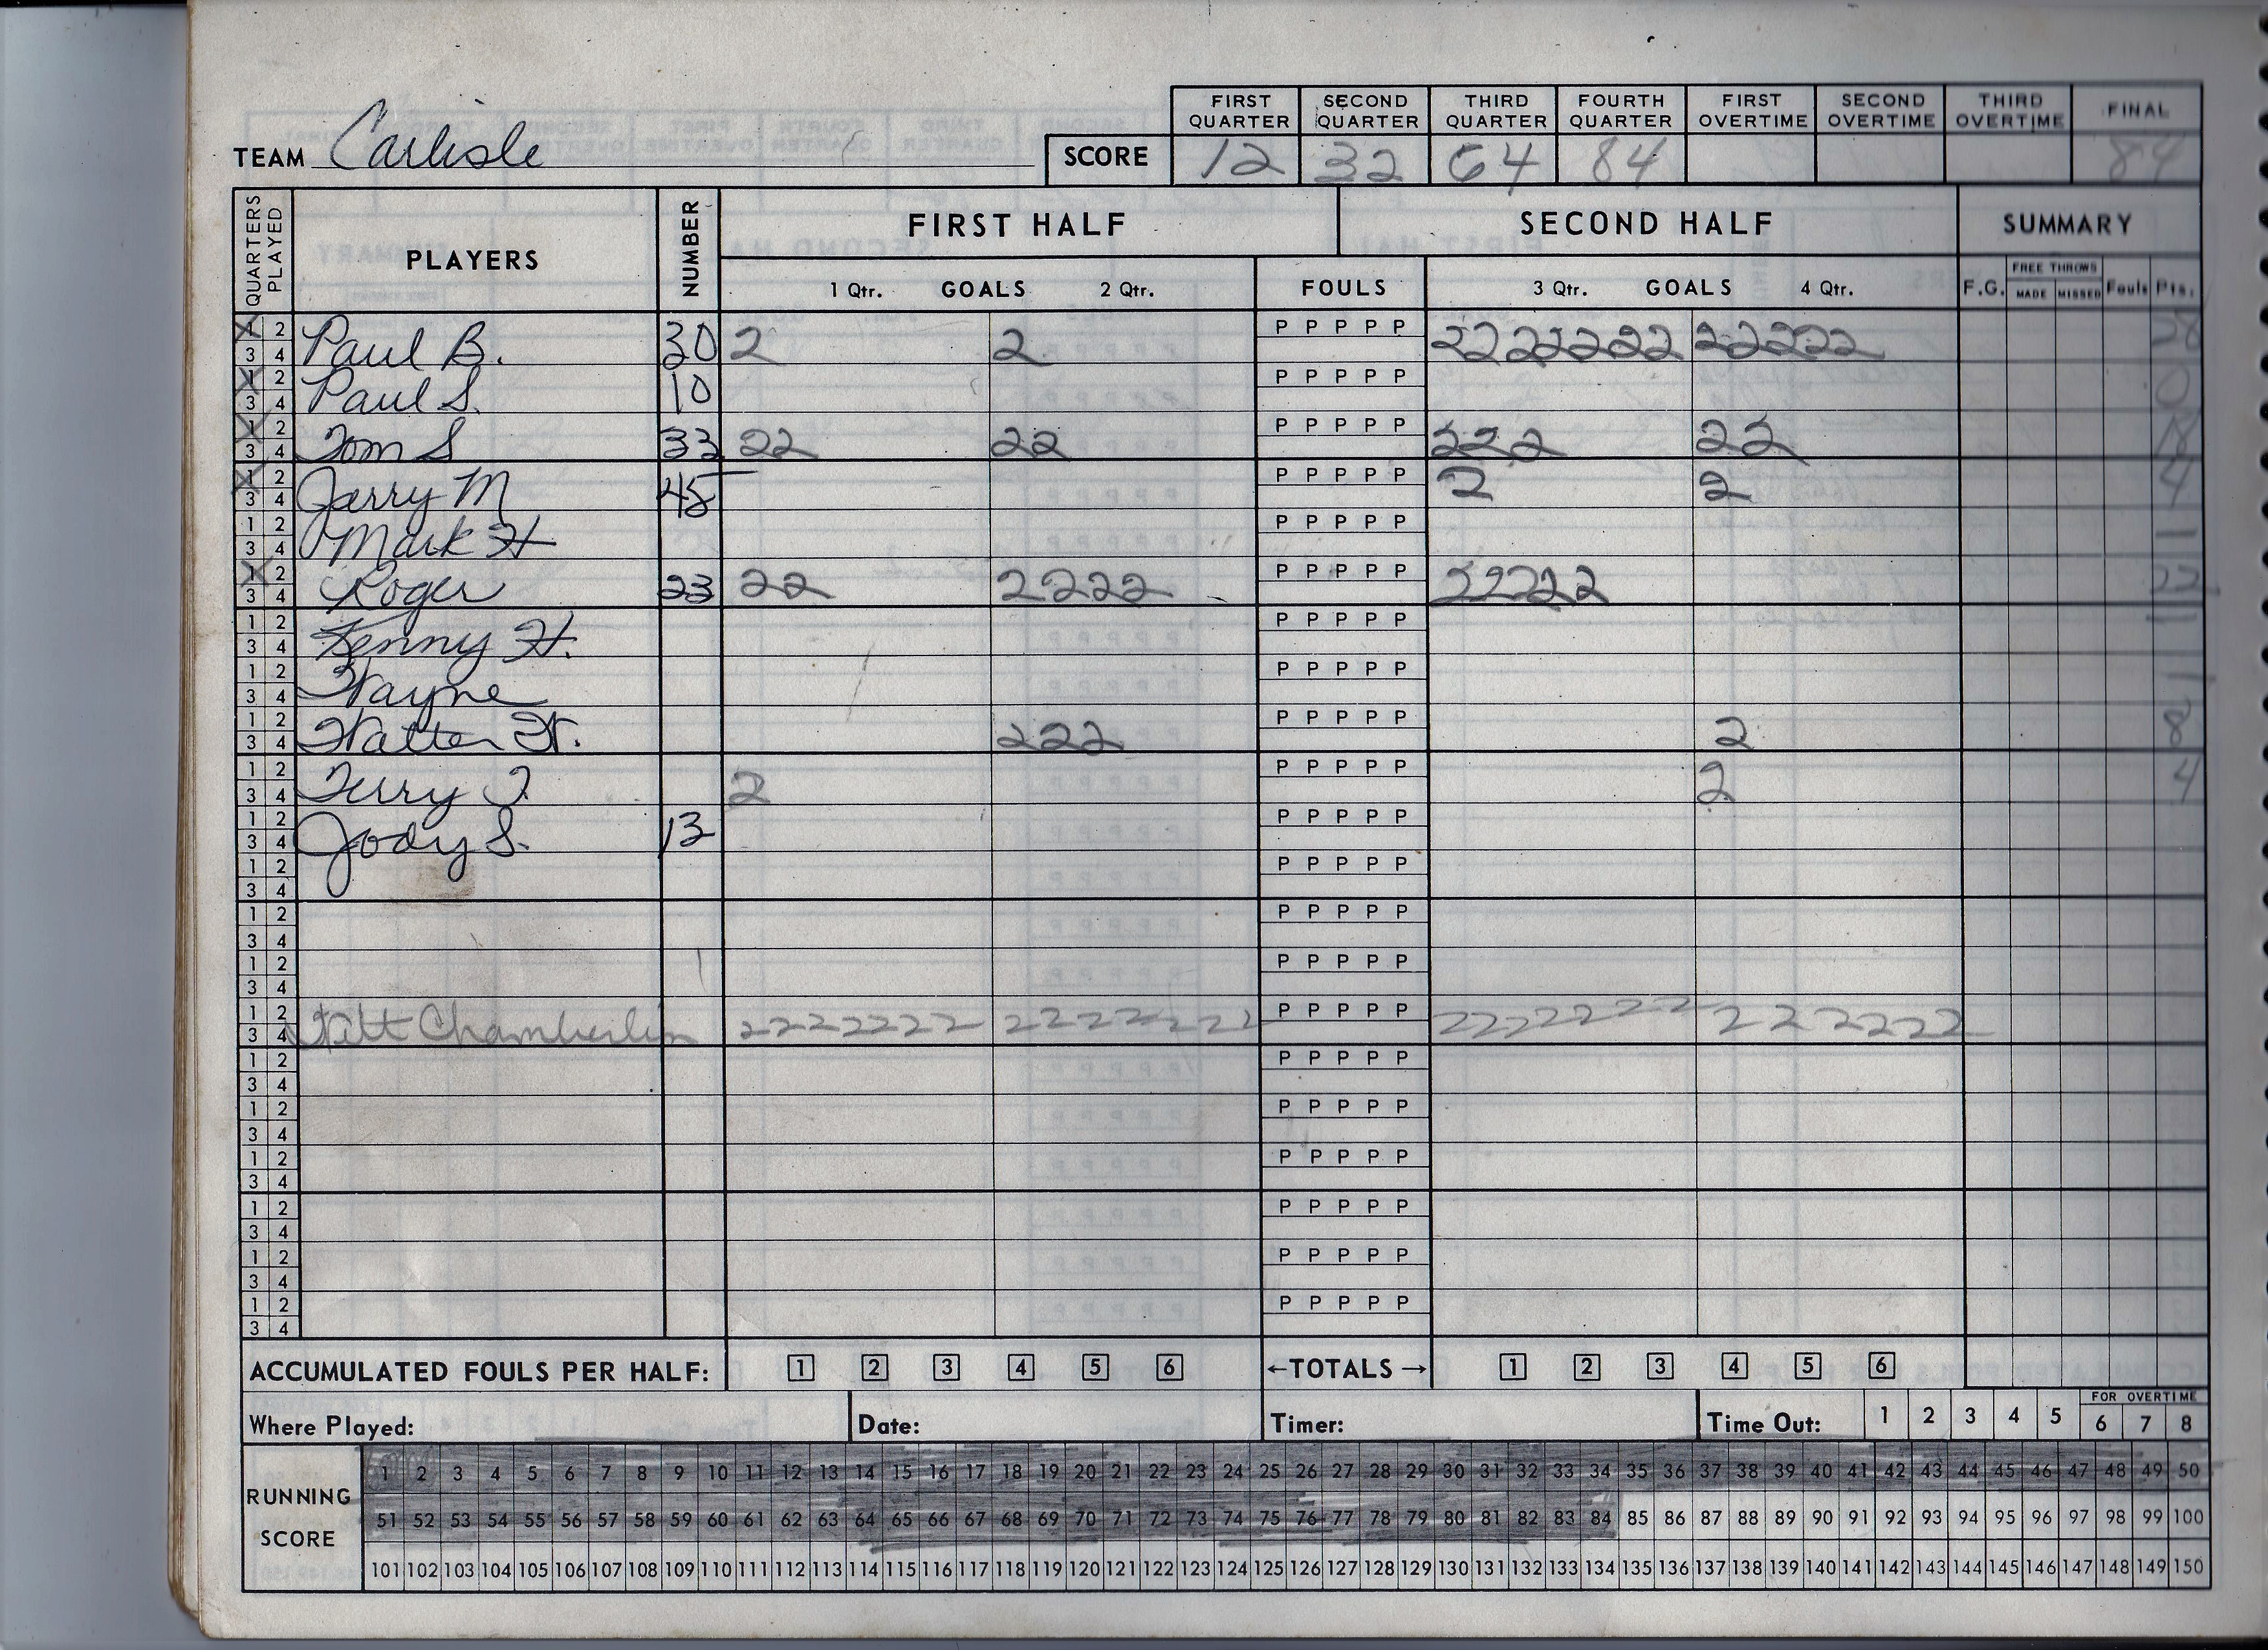 FIRST QUARTER SECOND QUARTER THIRD QUARTER FOURTH QUARTER FIRST OVERTIME SECOND OVERTIME THIRD OVERTIME FINAL
TEAM Carlisle SCORE 12 32 64 84 84
QUARTERS PLAYED PLAYERS NUMBER FIRST HALF SECOND HALF SUMMARY
1 Qtr. GOALS 2 Qtr. FOULS 3 Qtr. GOALS 4 Qtr. F.G. FREE THROWS MADE MISSED Fouls Pts.
1 2 P P P P P
3 4 Paul B. 30 2 2 2222222 22222 28
1 2 P P P P P
3 4 Paul S. 10 0
1 2 P P P P P
3 4 Tom S 33 22 22 222 22 18
1 2 P P P P P
3 4 Jerry M 45 2 2 4
1 2 P P P P P
3 4 Mark H
1 2 P P P P P
3 4 Roger 23 22 2222 22222 22
1 2 P P P P P
3 4 Kenny H.
1 2 P P P P P
3 4 Wayne
1 2 P P P P P
3 4 Walter W. 222 2 8
1 2 P P P P P
3 4 Terry J 2 2 4
1 2 P P P P P
3 4 Jody S. 13
1 2 P P P P P
3 4
1 2 P P P P P
3 4
1 2 P P P P P
3 4
1 2 P P P P P
3 4 Wilt Chamberlin 2222222 2222222 22222222 222222
1 2 P P P P P
3 4
1 2 P P P P P
3 4
1 2 P P P P P
3 4
1 2 P P P P P
3 4
1 2 P P P P P
3 4
1 2 P P P P P
3 4
ACCUMULATED FOULS PER HALF: 1 2 3 4 5 6 ←TOTALS→ 1 2 3 4 5 6
Where Played: Date: Timer: Time Out: 1 2 3 4 5 FOR OVERTIME 6 7 8
RUNNING SCORE
1 2 3 4 5 6 7 8 9 10 11 12 13 14 15 16 17 18 19 20 21 22 23 24 25 26 27 28 29 30 31 32 33 34 35 36 37 38 39 40 41 42 43 44 45 46 47 48 49 50
51 52 53 54 55 56 57 58 59 60 61 62 63 64 65 66 67 68 69 70 71 72 73 74 75 76 77 78 79 80 81 82 83 84 85 86 87 88 89 90 91 92 93 94 95 96 97 98 99 100
101 102 103 104 105 106 107 108 109 110 111 112 113 114 115 116 117 118 119 120 121 122 123 124 125 126 127 128 129 130 131 132 133 134 135 136 137 138 139 140 141 142 143 144 145 146 147 148 149 150